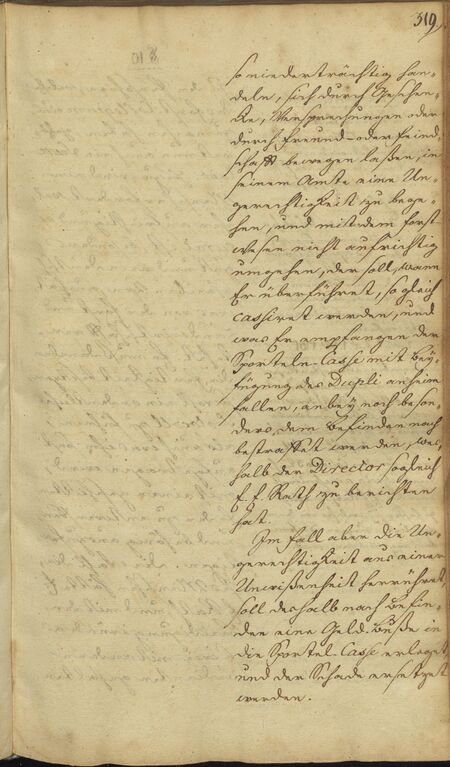 319.
so niederträchtig han-
deln, sich durch Geschen-
ke, Versprechungen oder
durch Freund- oder Feind-
schafft bewegen laßen, in
seinem Amte eine Un-
gerechtigkeit zu bege-
hen, und mit dem Forst-
wesen nicht aufrichtig
umgehen, der soll, wann
Er überführet, sogleich
cassiret werden, und
was Er empfangen der
Sporteln-Casse mit Bey-
fügung des Dupli anheim
fallen, anbey noch beson-
ders dem Befinden nach
bestraffet werden, wes-
halb der Director sogleich
E. E. Rath zu berichten
hat.
Im Fall aber die Un-
gerechtigkeit aus einer
Unwißenheit herrühret,
soll deshalb nach Befin-
den eine Geld-Buße in
die Sportel-Casse erleget,
und der Schade ersetzet
werden.